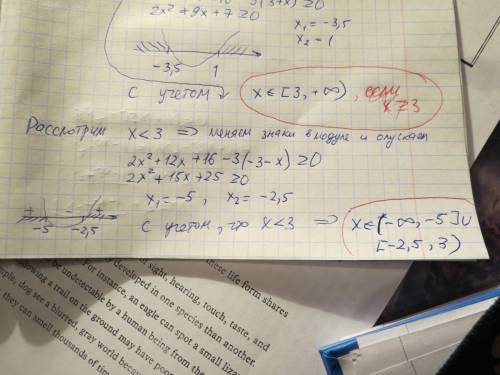 3(3+x) ≥0
2x² + 9x + 7 ≥0
x₁ = -3,5
x₂ = 1
-3,5 1
С учетом
x ∈ [3, +∞), если
x ≥ 3
Рассмотрим x < 3 ⇒ меняем знаки в модуле и опускаем
2x² + 12x + 16 - 3(-3-x) ≥0
2x² + 15x + 25 ≥0
x₁ = -5, x₂ = -2,5
+ - +
-5 -2,5
С учетом, что x < 3 ⇒ x ∈ (-∞, -5] ∪
[-2,5, 3)
these life form shares
of sight, hearing, touch, taste, and
developed in one species than another.
For instance, an eagle can spot a small
be undetectable by a human being from the
owing a trail on the ground may have poor
eople, dog see a blurred, gray world because
they can smell thousands of time